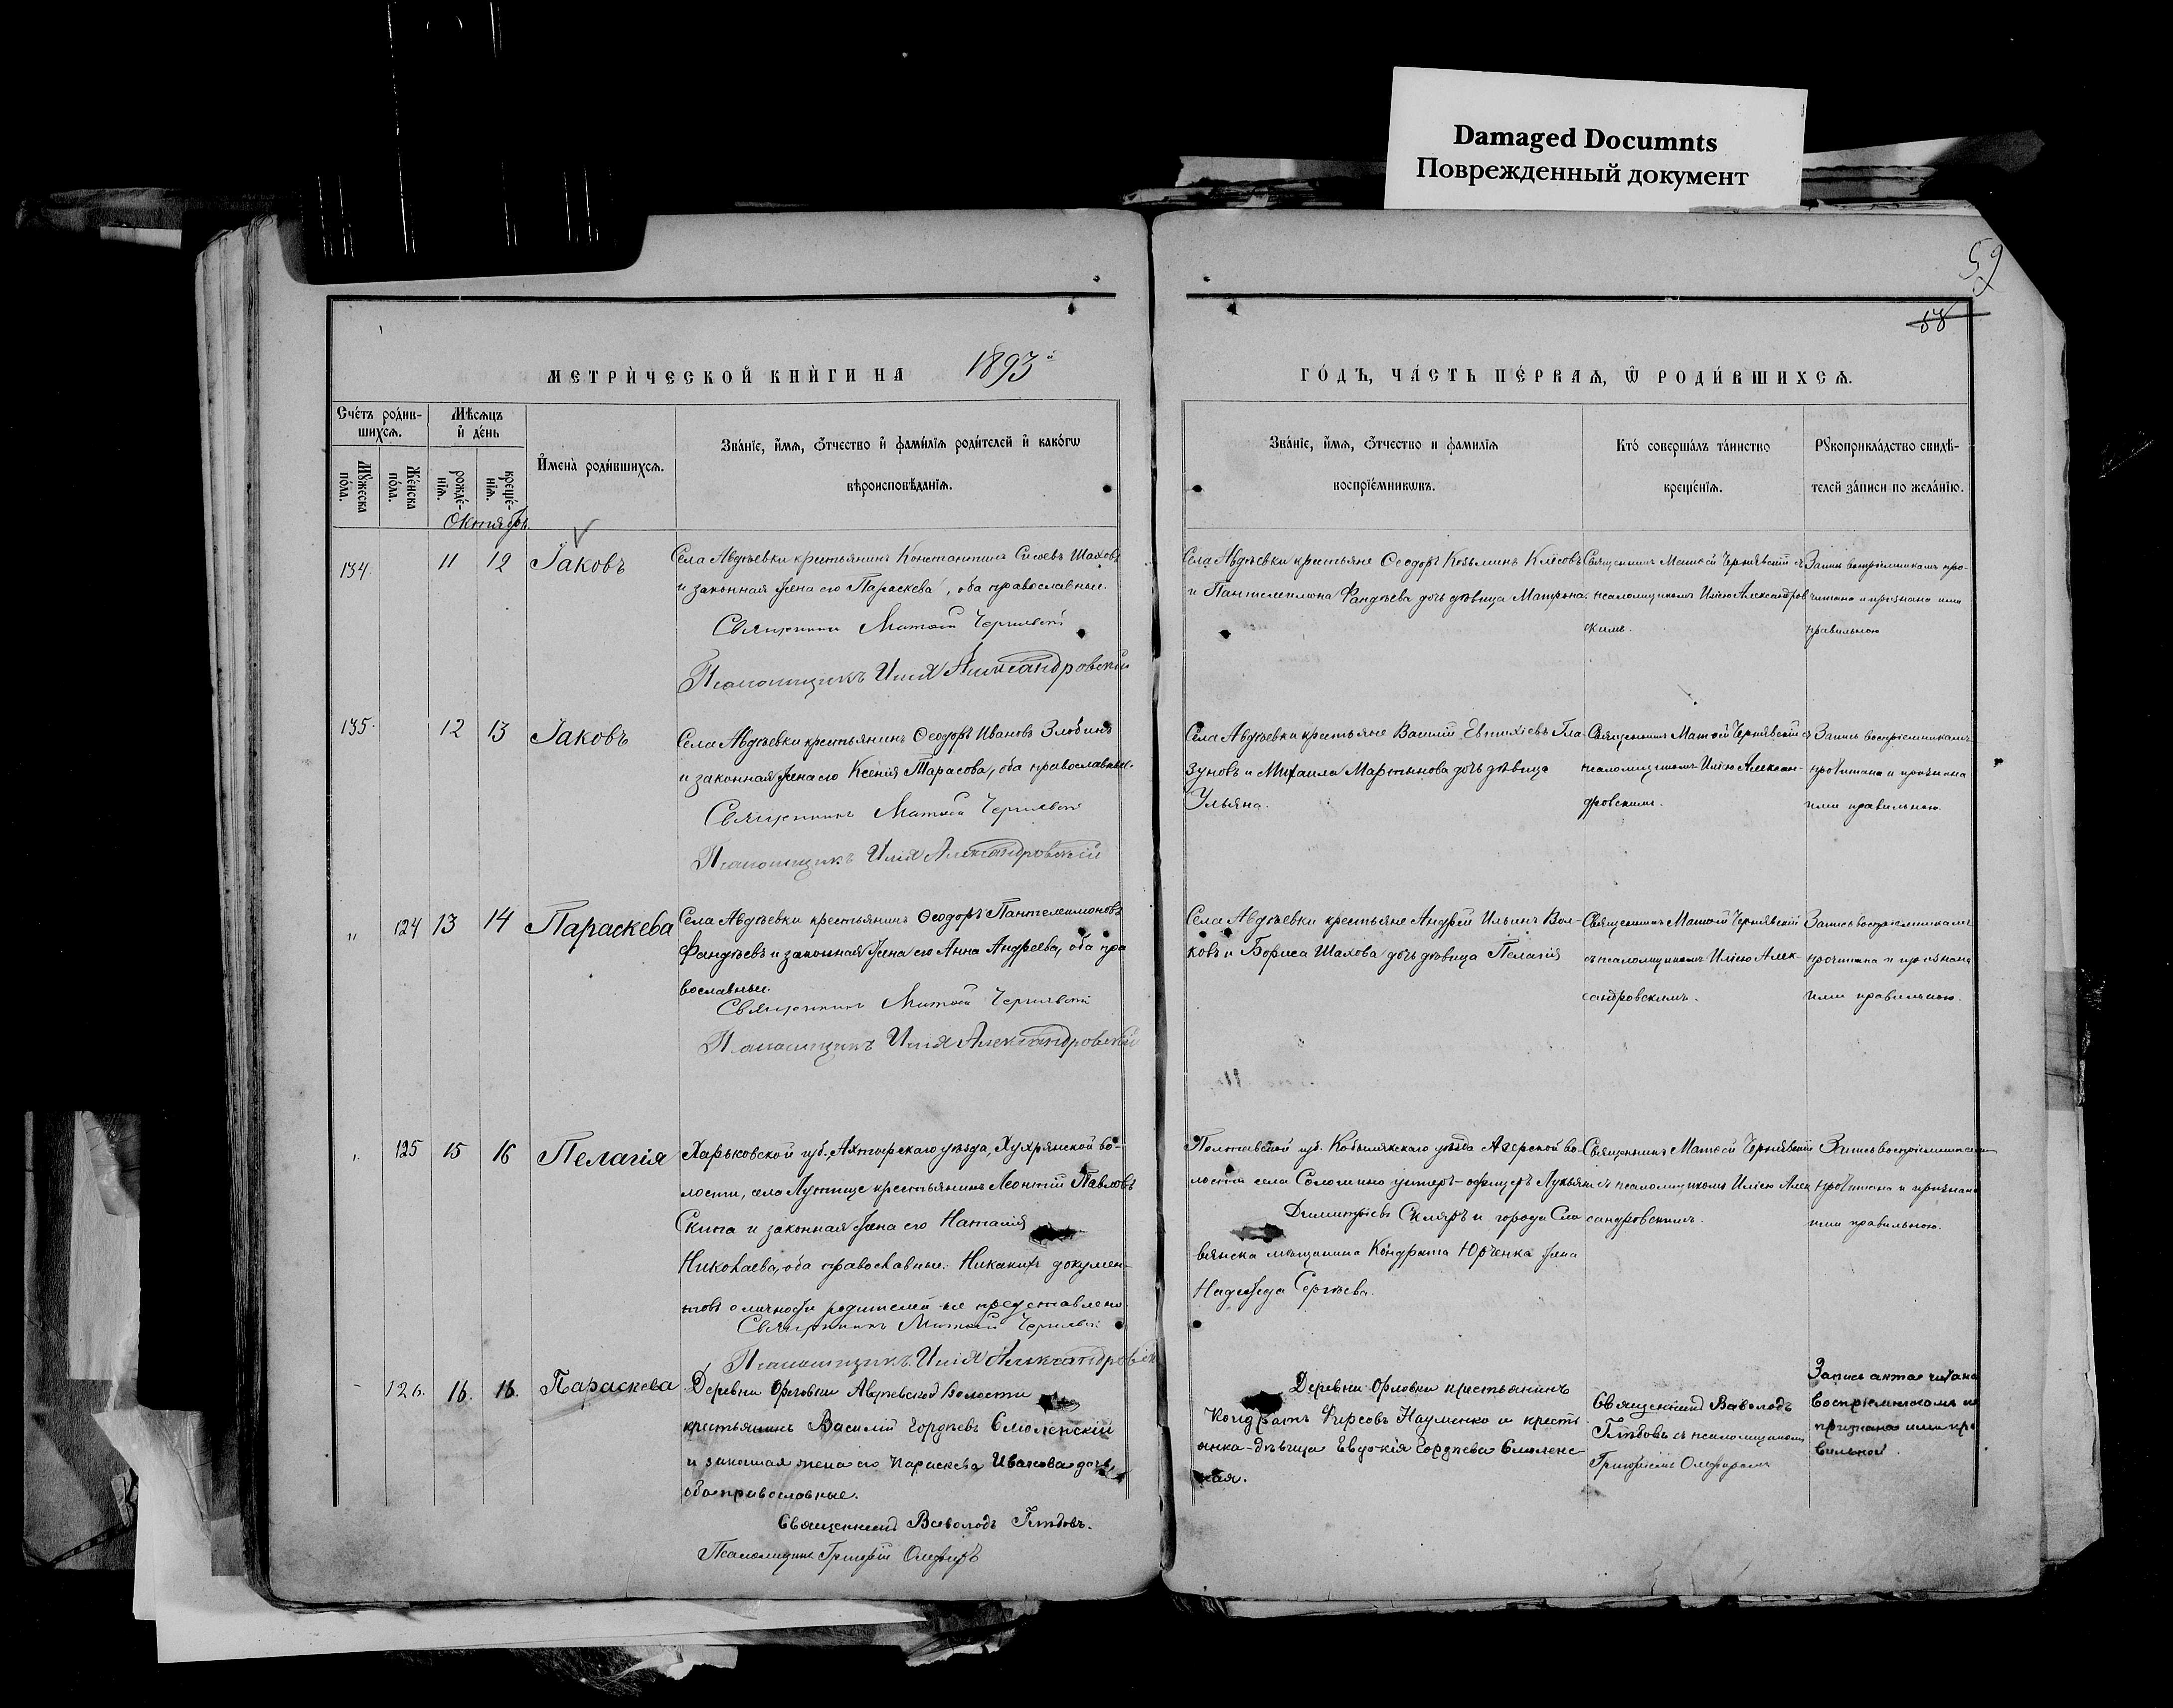 Damaged Documnts
Поврежденный документ
59
58
МЕТРИ́ЧЕСКОЙ КНИ́ГИ НА 1893й
ГО́ДЪ, ЧА́СТЬ ПЕ́РВАѦ, Ѿ РОДИ́ВШИХСѦ.
Сче́тъ роди́в-
шихсѧ.
Мѣсѧцъ
и҆ де́нь
Мꙋ́жеска
по́ла.
Же́нска
по́ла.
рожде́-
нїѧ.
креще́-
нїѧ.
И҆мена̀ роди́вшихсѧ.
Зва́нїе, и҆́мѧ, ѻ҆́тчество и҆ фами́лїѧ роди́телей и҆ како́гѡ
вѣроисповѣ́данїѧ.
Зва́нїе, и҆́мѧ, ѻ҆́тчество и фами́лїѧ
воспрїе́мникѡвъ.
Кто́ соверша́лъ та́инство
креще́нїѧ.
Рꙋкоприкла́дство свидѣ́-
телей за́писи по жела́нїю.
Октябрь.
134. 11 12 Іаковъ
Села Авдѣевки крестьянинъ Константинъ Сысоевъ Шаховъ
и законная жена его Параскева, оба православные.
Священникъ Матѳій Чернявскій
Псаломщикъ Илія Александровскій
Села Авдѣевки крестьяне Ѳеодоръ Козьминъ
и Пантелеимона Фандѣева дочь дѣвица Матрона.
Священникъ Матѳей Чернявскій съ
псаломщикомъ Иліею Александров
скимъ.
Запись воспріемникамъ про-
читана и признана ими
правильною
135. 12 13 Іаковъ
Села Авдѣевки крестьянинъ Ѳеодоръ Ивановъ Злобинъ
и законная жена его Ксенія Тарасова, оба православные.
Священникъ Матѳій Чернявскій
Псаломщикъ Илія Александровскій
Села Авдѣевки крестьяне Василій Евтихіевъ Гла-
зуновъ и Михаила Мартынова дочь дѣвица
Ульяна.
Священникъ Матѳій Чернявскій съ
псаломщикомъ Иліею Алексан-
дровскимъ.
Запись воспріемникамъ
прочитана и признана
ими правильною.
" 124 13 14 Параскева
Села Авдѣевки крестьянинъ Ѳеодоръ Пантелеимоновъ
Фандѣевъ и законная жена его Анна Андреева, оба пра
вославные.
Священникъ Матѳій Чернявскій
Псаломщикъ Илія Александровскій
Села Авдѣевки крестьяне Андрей Ильинъ Вол-
ковъ и Бориса Шахова дочь дѣвица Пелагія
Священникъ Матѳій Чернявскій
съ псаломщикомъ Иліею Алек-
сандровскимъ.
Запись воспріемникамъ
прочитана и признана
ими правильною.
" 125 15 16 Пелагія
Харьковской губ., Ахтырскаго уѣзда, Хухрянской во-
лости, села Лутище крестьянинъ Леонтій Павловъ
Скипа и законная жена его Наталія
Николаева, оба православные. Никакихъ докумен-
товъ о личности родителей не представлено.
Священникъ Матѳій Чернявскій
Псаломщикъ Илія Александровскій
Полтавской губ. Кобелякскаго уѣзда во-
лости села Солошино унтеръ-офицеръ Лукьянъ
Димитріевъ Скляръ и города Сла
вянска мѣщанина Кондрата Юрченка жена
Надежда Сергѣева.
Священникъ Матѳей Чернявскій
съ псаломщикомъ Иліею Алек
сандровскимъ.
Запись воспріемникамъ
прочитана и признана
ими правильною.
- 126. 16. 16. Параскева
Деревни Орловки Авдѣевской волости
крестьянинъ Василій Гордѣевъ Смоленскій
и законная жена его Параскева Иванова дочь,
оба православные.
Священникъ Всеволодъ
Псаломщикъ Григорій
Деревни Орловки крестьянинъ
Кондратъ Фирсовъ Науменко и кресть
янка-дѣвица Евдокія Гордѣева Смоленс
кая.
Священникъ Всеволодъ
съ псаломщикомъ
Григоріемъ
Запись акта читана
воспріемникамъ и
признана ими пра
вильной.